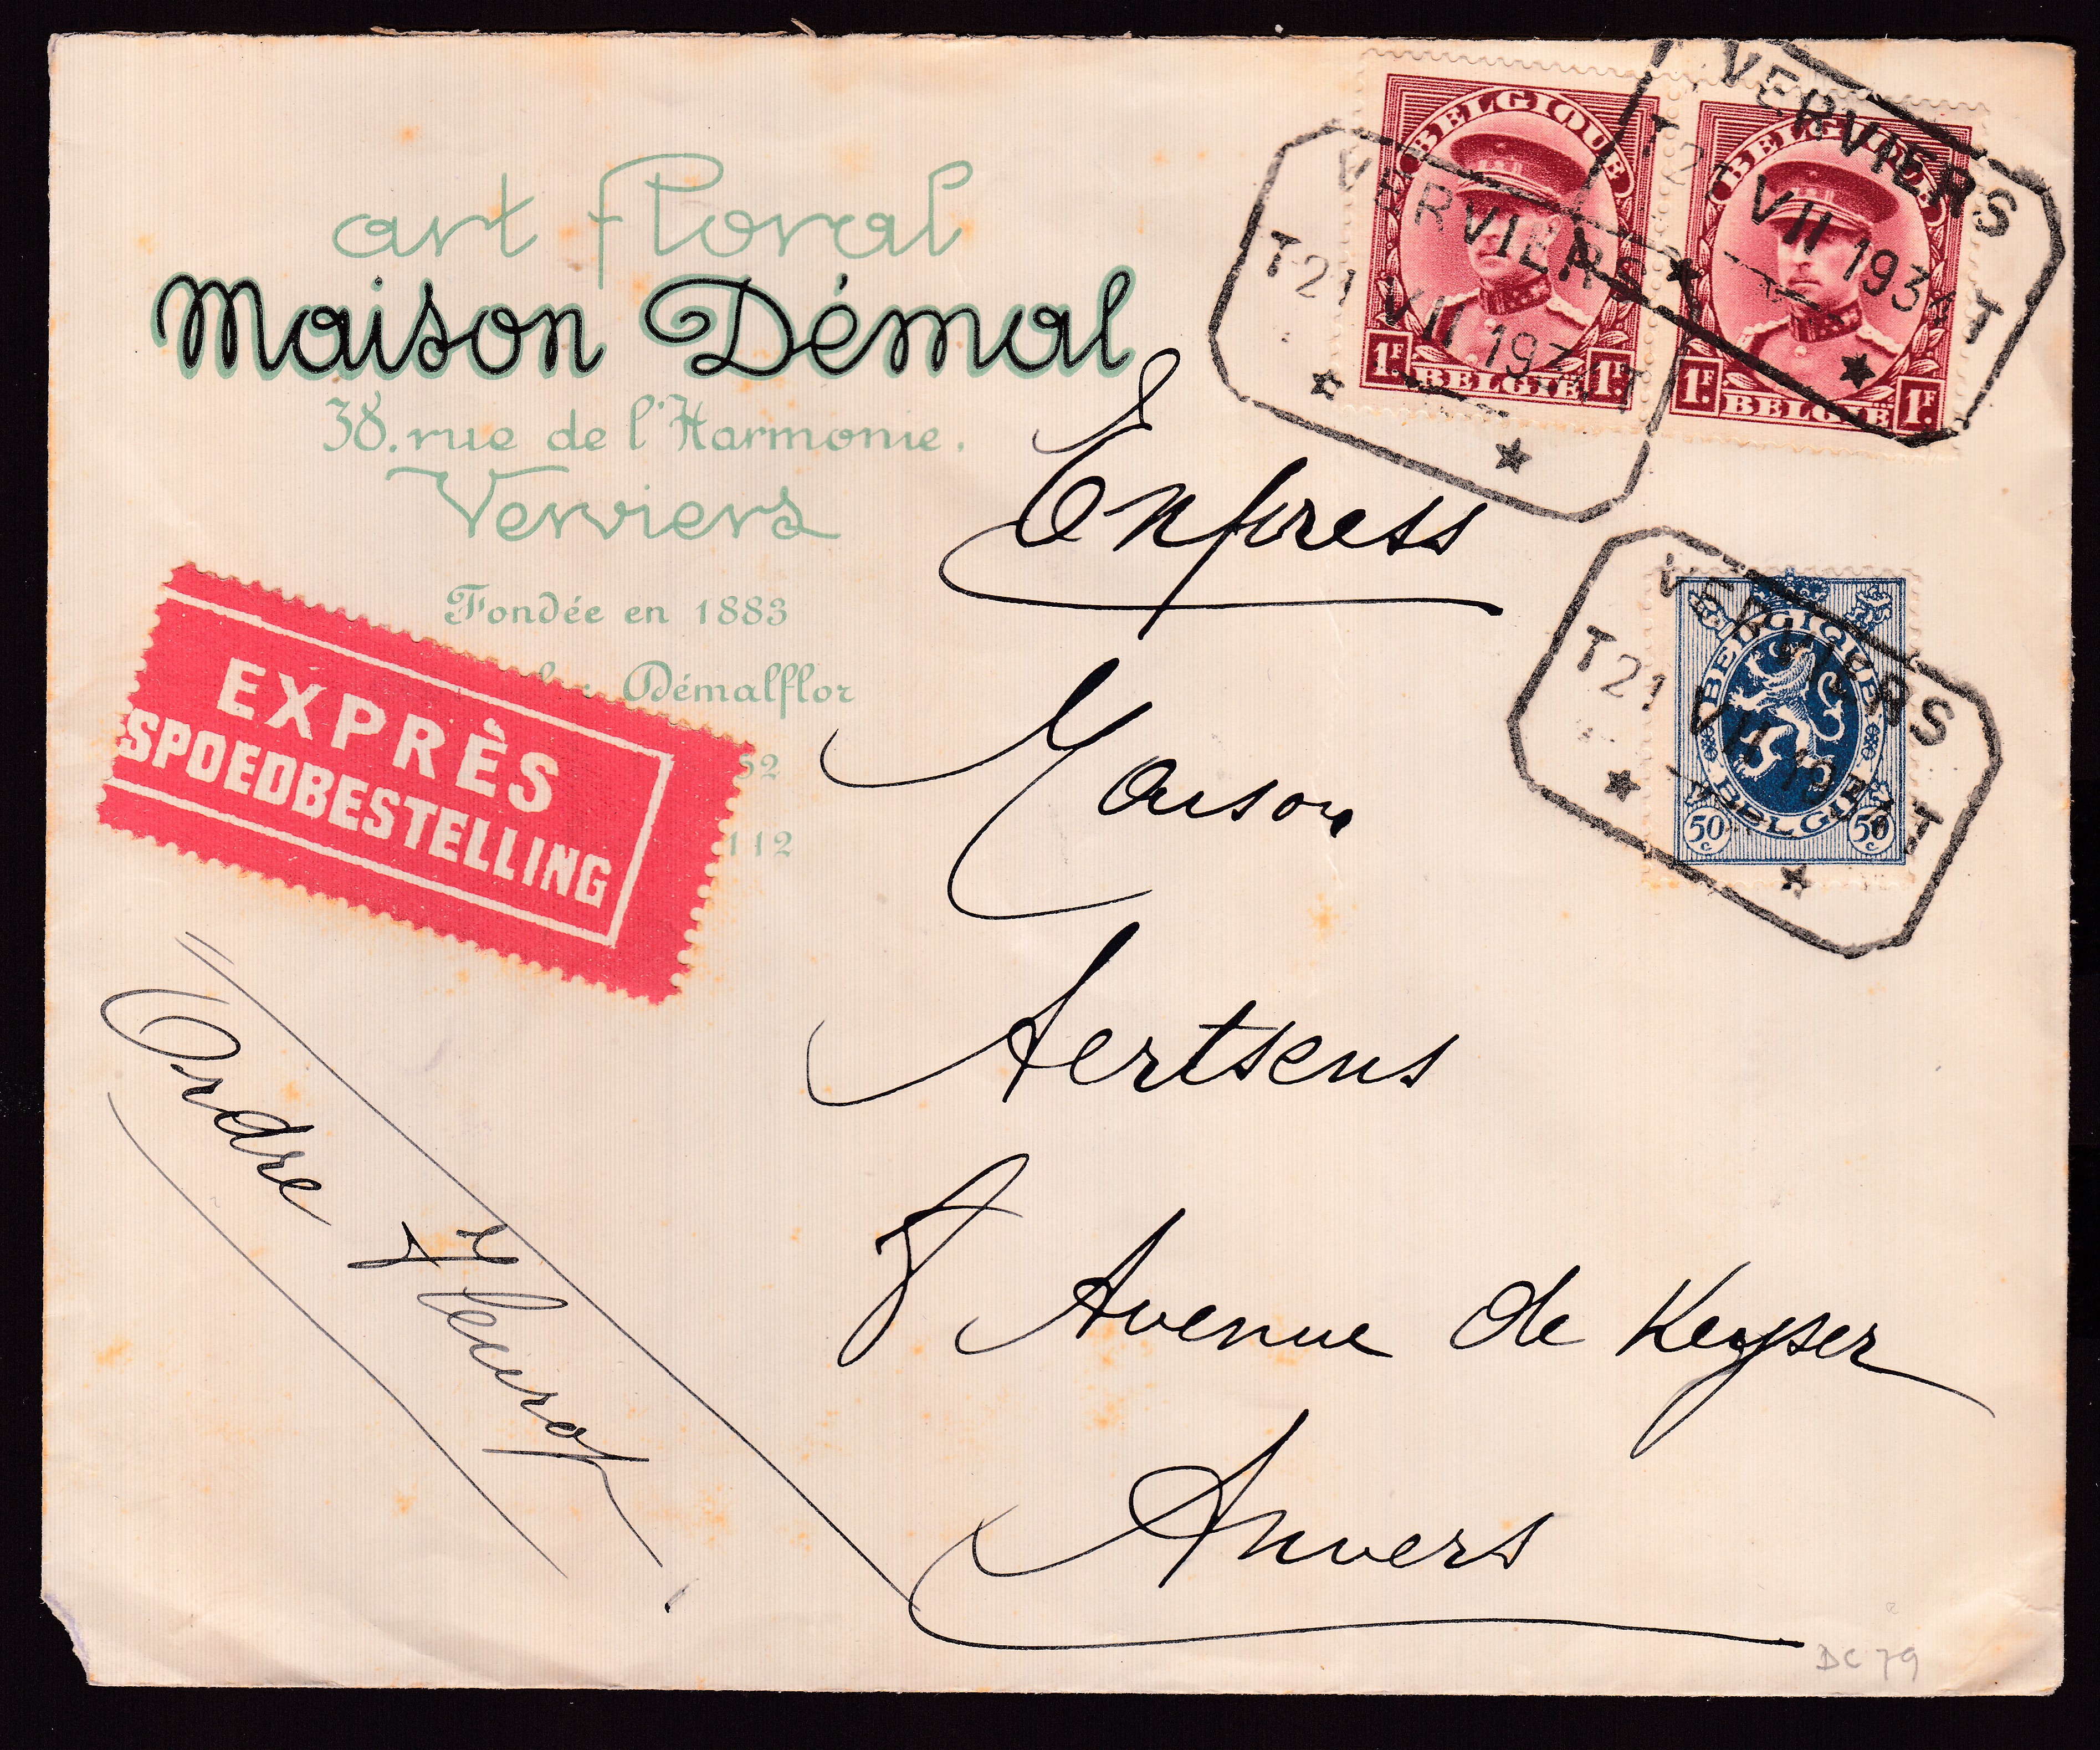 art floral
Maison Démal
38. rue de l'Harmonie.
Verviers
Fondée en 1883
Démalflor
52
112
EXPRÈS
SPOEDBESTELLING
BELGIQUE
1F 1F
BELGIË
BELGIQUE
1F 1F
BELGIË
VERVIERS
T 21 VII 193 T
VERVIERS
T 21 VII 1931 T
BELGIQUE
BELGIË
50 c 50 c
VERVIERS
T 21 VII 1931 T
Express
Maison
Aertsens
8 Avenue de Keyser
Anvers
Ordre
DC 79